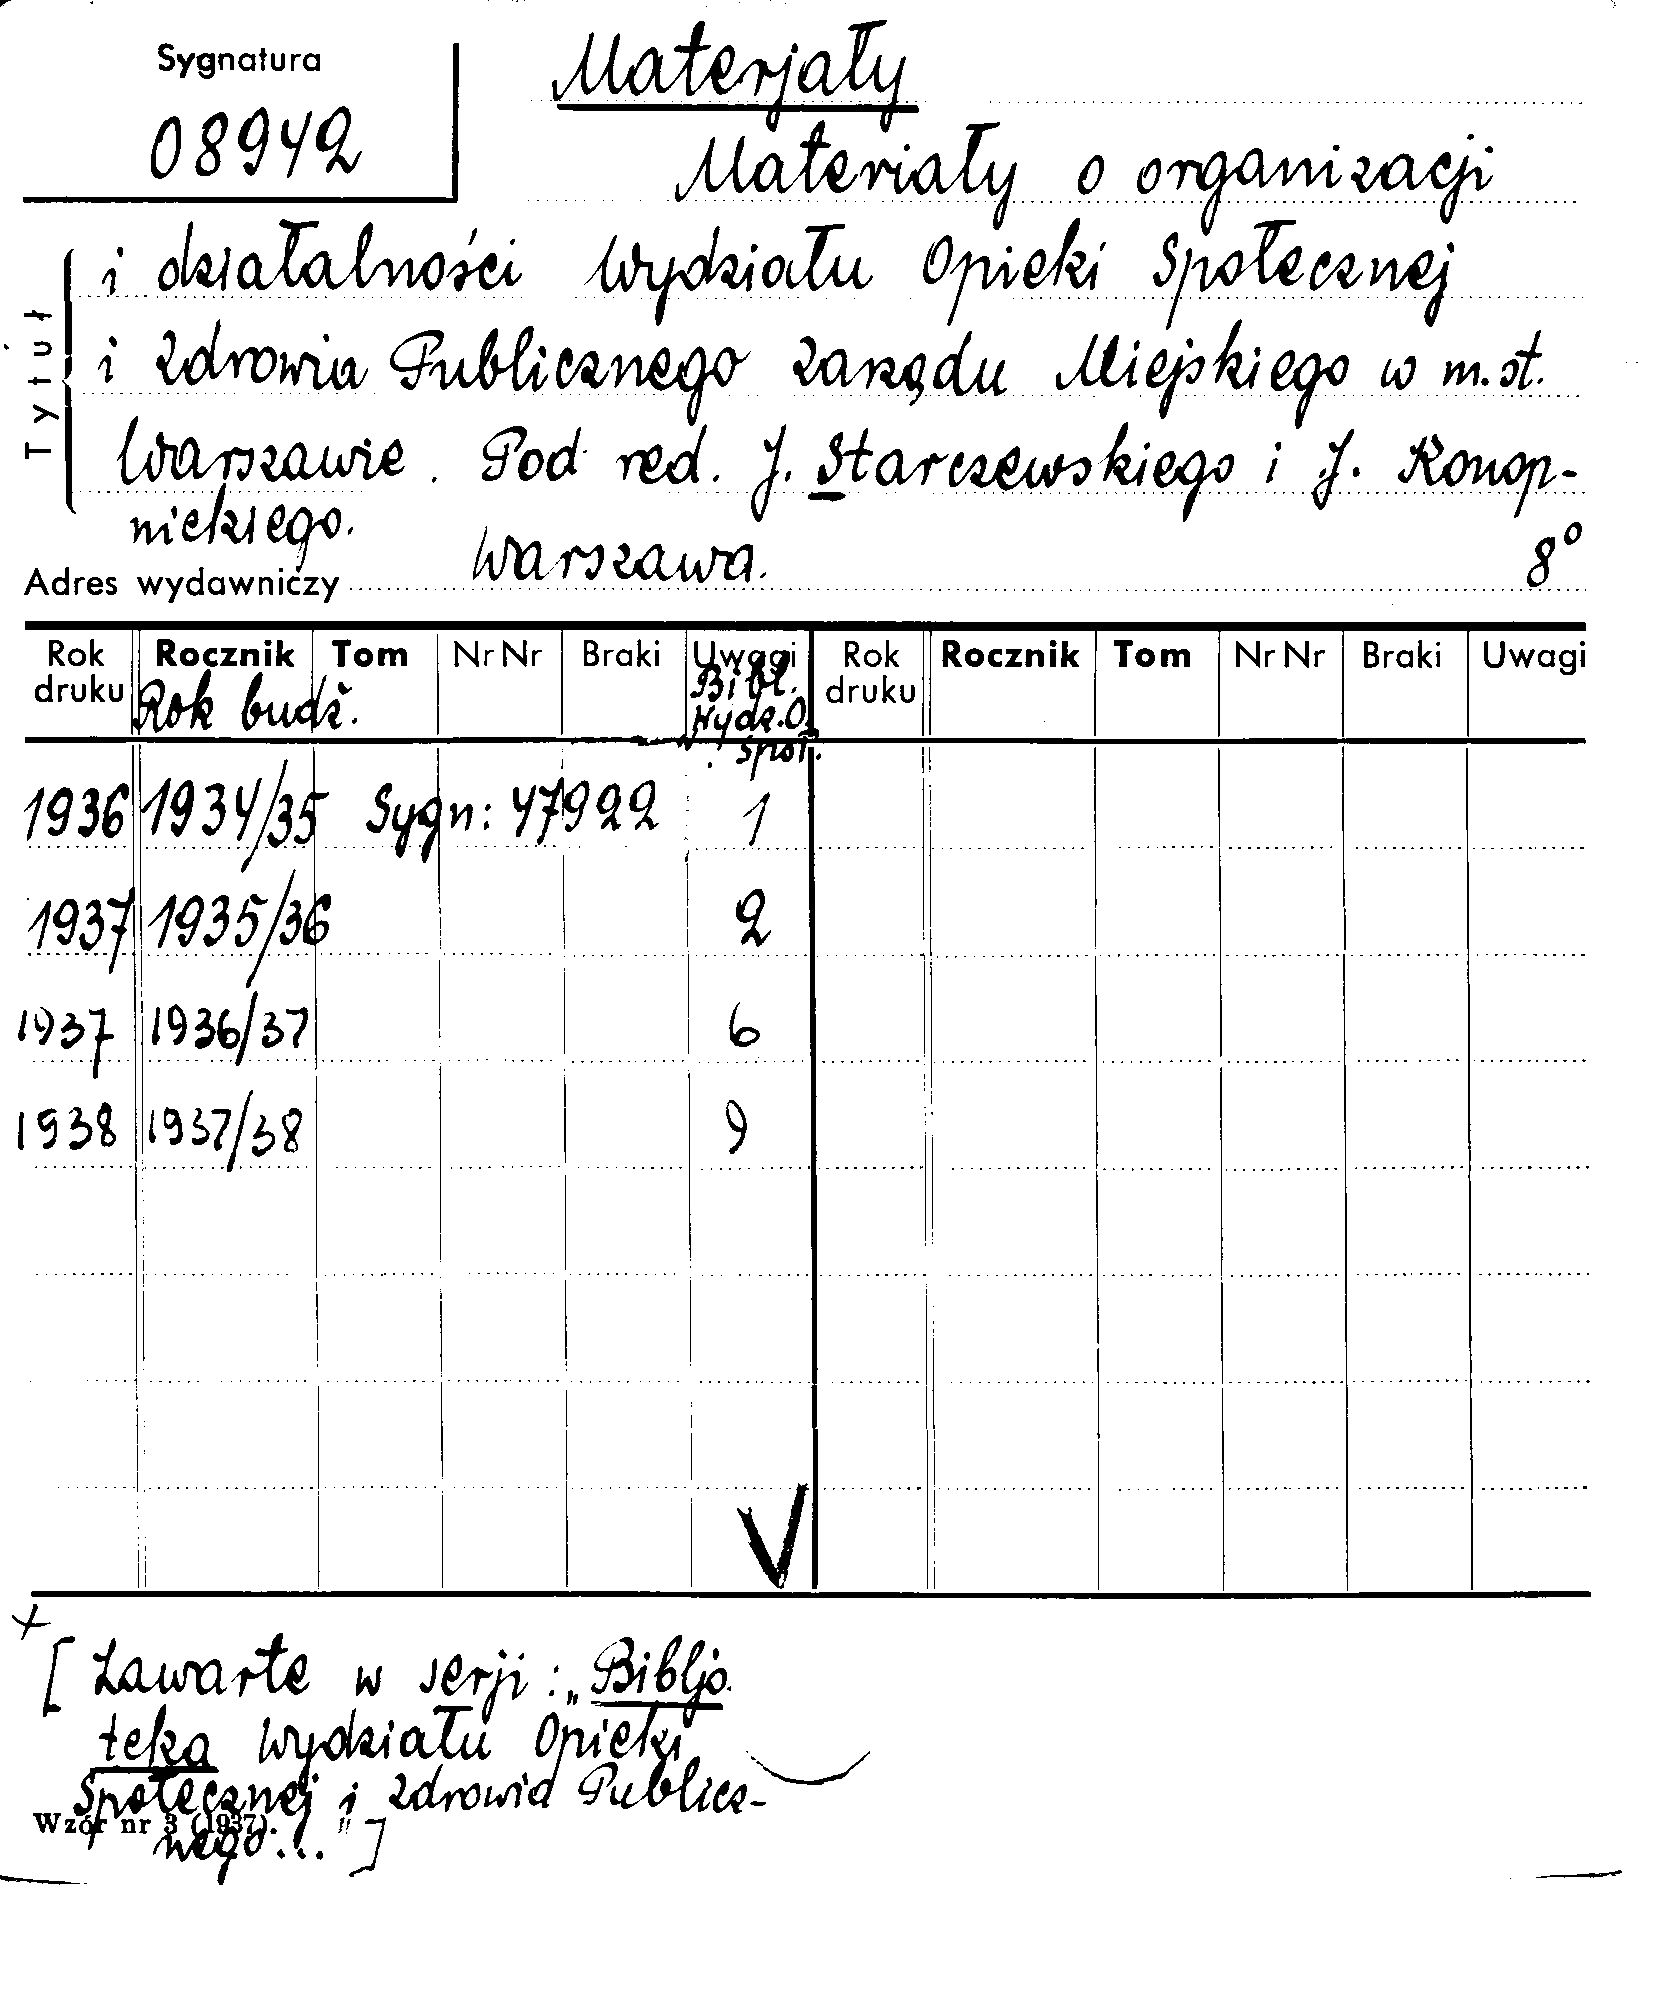 Sygnatura
08942
Materjały
Materiały o organizacji
i działalności Wydziału Opieki Społecznej
i Zdrowia Publicznego Zarządu Miejskiego w m.st.
Warszawie. Pod red. J. Starczewskiego i J. Konop-
nickiego.
Tytuł
Adres wydawniczy Warszawa. 8°
Rok druku Rocznik Tom Nr Nr Braki Uwagi Rok druku Rocznik Tom Nr Nr Braki Uwagi
Rok budż. Bibl.
Wydz.O.
Społ.
1936 1934/35 Sygn: 47922 1
1937 1935/36 2
1937 1936/37 6
1938 1937/38 9
V
+
[Zawarte w serji: „Bibljo
teka Wydziału Opieki
Społecznej i Zdrowia Publicz-
nego..."]
Wzór nr 3 (1937).